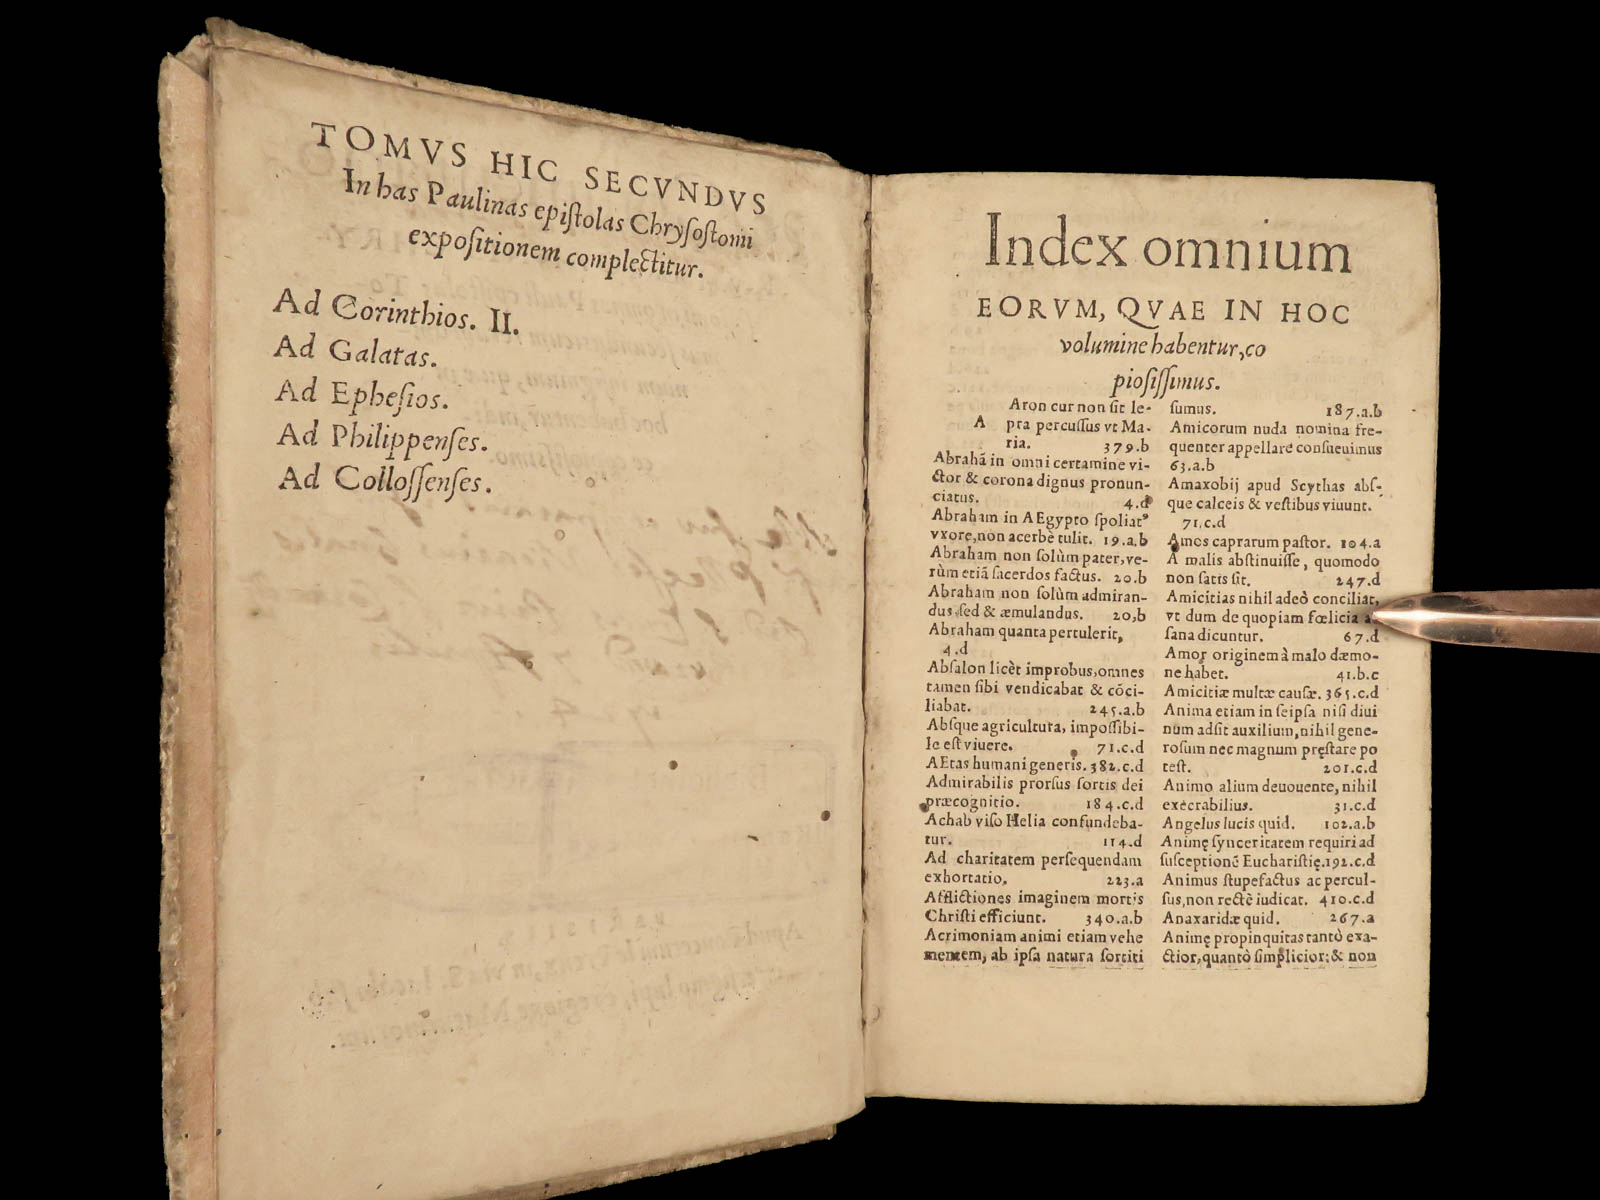 TOMVS HIC SECVNDVS
In has Paulinas epiſtolas Chryſoſtomi
expoſitionem complectitur.
Ad Corinthios. II.
Ad Galatas.
Ad Epheſios.
Ad Philippenſes.
Ad Colloſſenſes.
Index omnium
EORVM, QVAE IN HOC
volumine habentur, co
pioſiſſimus.
Aron cur non ſit le-
A pra percuſſus vt Ma-
ria. 379.b
Abrahã in omni certamine vi-
ctor & corona dignus pronun-
ciatus. 4.d
Abraham in AEgypto ſpoliat⁹
vxore, non acerbè tulit. 19.a.b
Abraham non ſolùm pater, ve-
rùm etiã ſacerdos factus. 20.b
Abraham non ſolùm admiran-
dus, ſed & æmulandus. 20,b
Abraham quanta pertulerit,
4.d
Abſalon licèt improbus, omnes
tamen ſibi vendicabat & cõci-
liabat. 245.a.b
Abſque agricultura, impoſſibi-
le eſt viuere. 71.c.d
AEtas humani generis. 382.c.d
Admirabilis prorſus fortis dei
præcognitio. 184.c.d
Achab viſo Helia confundeba-
tur. 114.d
Ad charitatem perſequendam
exhortatio, 223.a
Afflictiones imaginem mortis
Chriſti efficiunt. 340.a.b
Acrimoniam animi etiam vehe
mentem, ab ipſa natura ſortiti
ſumus. 187.a.b
Amicorum nuda nomina fre-
quenter appellare conſueuimus
63.a.b
Amaxobij apud Scythas abſ-
que calceis & veſtibus viuunt.
71.c.d
Amos caprarum paſtor. 104.a
A malis abſtinuiſſe, quomodo
non ſatis ſit. 247.d
Amicitias nihil adeò conciliat,
vt dum de quopiam fœlicia
ſana dicuntur. 67.d
Amor originem à malo dæmo-
ne habet. 41.b.c
Amicitiæ multæ cauſæ. 365.c.d
Anima etiam in ſeipſa niſi diui
num adſit auxilium, nihil gene-
roſum nec magnum pręſtare po
teſt. 201.c.d
Animo alium deuouente, nihil
execrabilius. 31.c.d
Angelus lucis quid. 102.a.b
Animę ſynceritatem requiri ad
ſuſceptionẽ Euchariſtię. 192.c.d
Animus ſtupefactus ac percul-
ſus, non rectè iudicat. 410.c.d
Anaxaridæ quid. 267.a
Animę propinquitas tantò exa-
ctior, quantò ſimplicior: & non